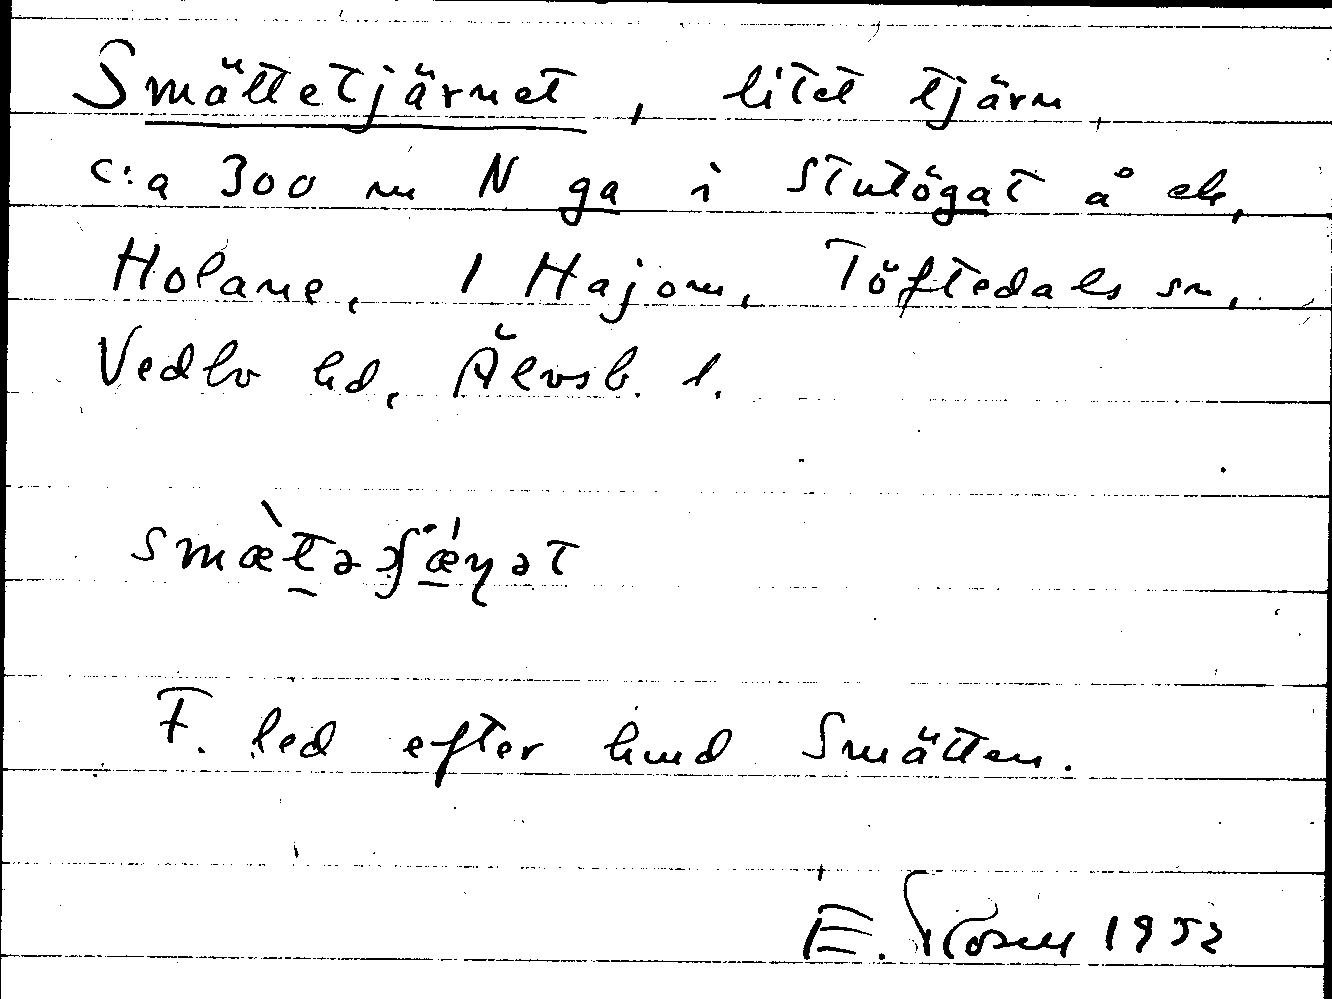 Smättetjärnet, litet tjärn,
c:a 300 m N ga i Stutögat å ek,
Holane, 1 Hajom, Töftedals sn,
Vedbo hd, Älvsb. l.
F. led efter hund Smätten.
E. 1952